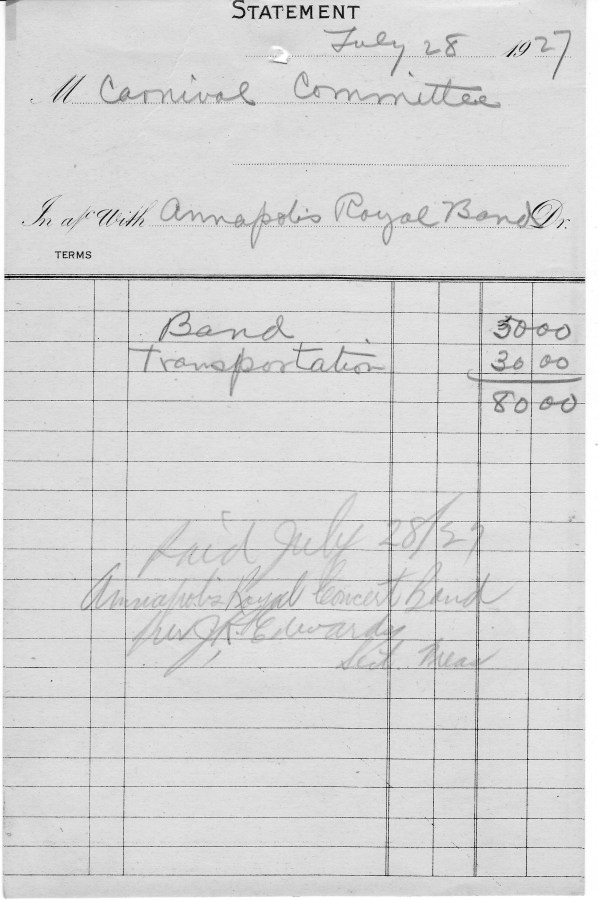 STATEMENT
July 28 1927
M Carnival Committee
In a/c With Annapolis Royal Band Dr.
TERMS
Band 50 00
Transportation 30 00
80 00
Paid July 28/27
Annapolis Royal Concert Band
Per J.R. Edwards
Sect. Treas